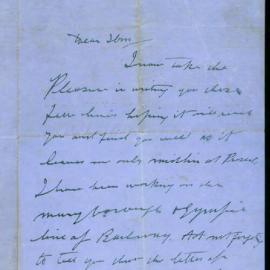 Dear Tom
I now take the
Pleasure in writing you these
few lines hoping it will reach
you and find you well as it
leaves me only at
I have been working on the
maryborough & Gympie
line of Railway.
to tell you that the letter of